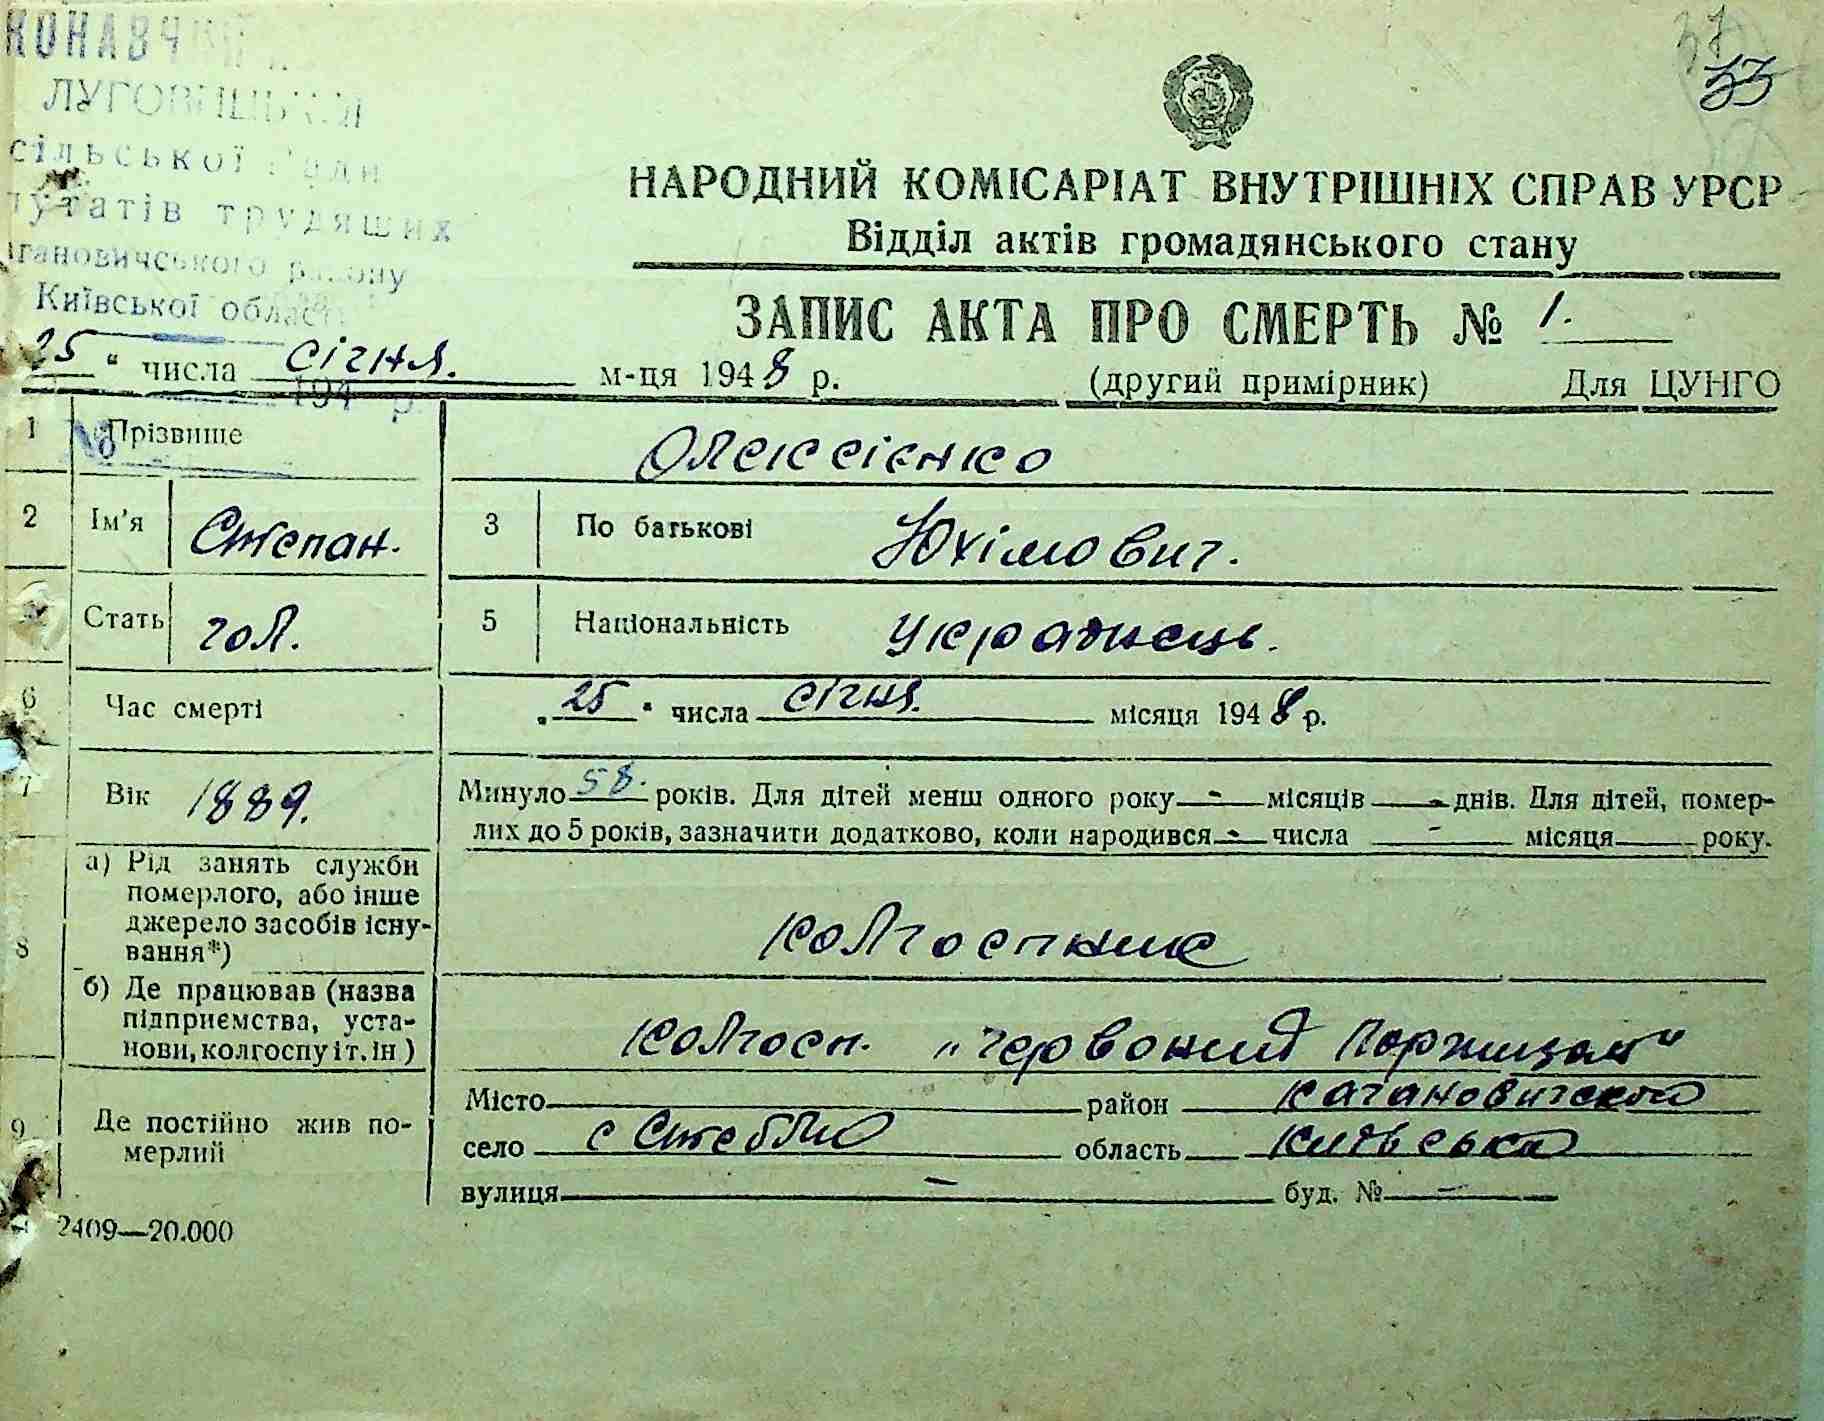 КОНАВЧИЙ
ЛУГОВИЦЬКОЇ
сільської Ради
путатів трудящих
гановичського району
Київської області
194 р.
№
37
33
НАРОДНИЙ КОМІСАРІАТ ВНУТРІШНІХ СПРАВ УРСР
Відділ актів громадянського стану
ЗАПИС АКТА ПРО СМЕРТЬ № 1.
25 " числа січня. м-ця 1948 р. (другий примірник) Для ЦУНГО
1 Прізвище Олексієнко
2 Ім'я Степан. 3 По батькові Юхімович.
Стать чол. 5 Національність Українець.
6 Час смерті „25 " числа січня. місяця 1948 р.
7 Вік 1889. Минуло 58. років. Для дітей менш одного року - місяців - днів. Для дітей, помер-
лих до 5 років, зазначити додатково, коли народився - числа - місяця року.
8 а) Рід занять служби
померлого, або інше
джерело засобів існу-
вання*)
колгоспник
б) Де працював (назва
підприємства, уста-
нови, колгоспу і т. ін )
колгосп. „Червоний
9 Де постійно жив по-
мерлий
Місто район Кагановичский
село с Стебло область Київська
вулиця - буд. № -
2409—20.000